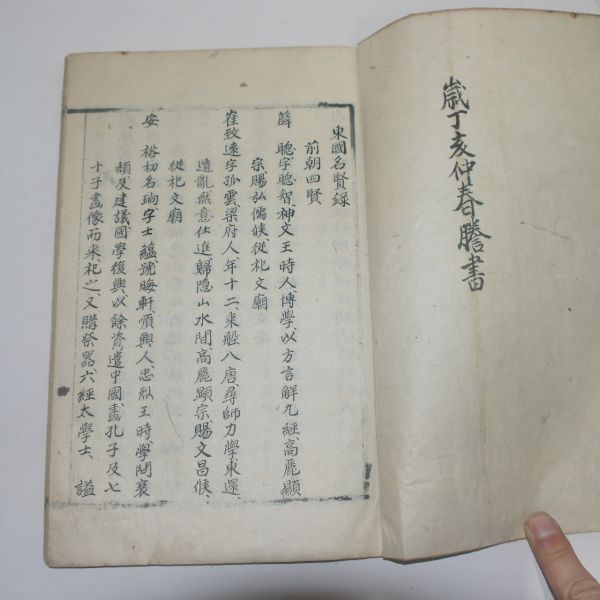 歲丁亥仲春謄書
東國名賢錄
前朝四賢
薛聰字聰智神文王時人博學以方言解九經高麗顯
宗賜弘儒侯從祀文廟
崔致遠字孤雲梁府人年十二乘船入唐尋師力學東還
遭亂無意仕進歸隐山水間高麗顯宗賜文昌侯
從祀文廟
安裕初名珦字士蘊號晦軒順興人忠烈王時學問衰
頹及建議國學復興以餘資遣中國畵孔子及七
十子畵像而來祀之又購祭器六經太學士謚